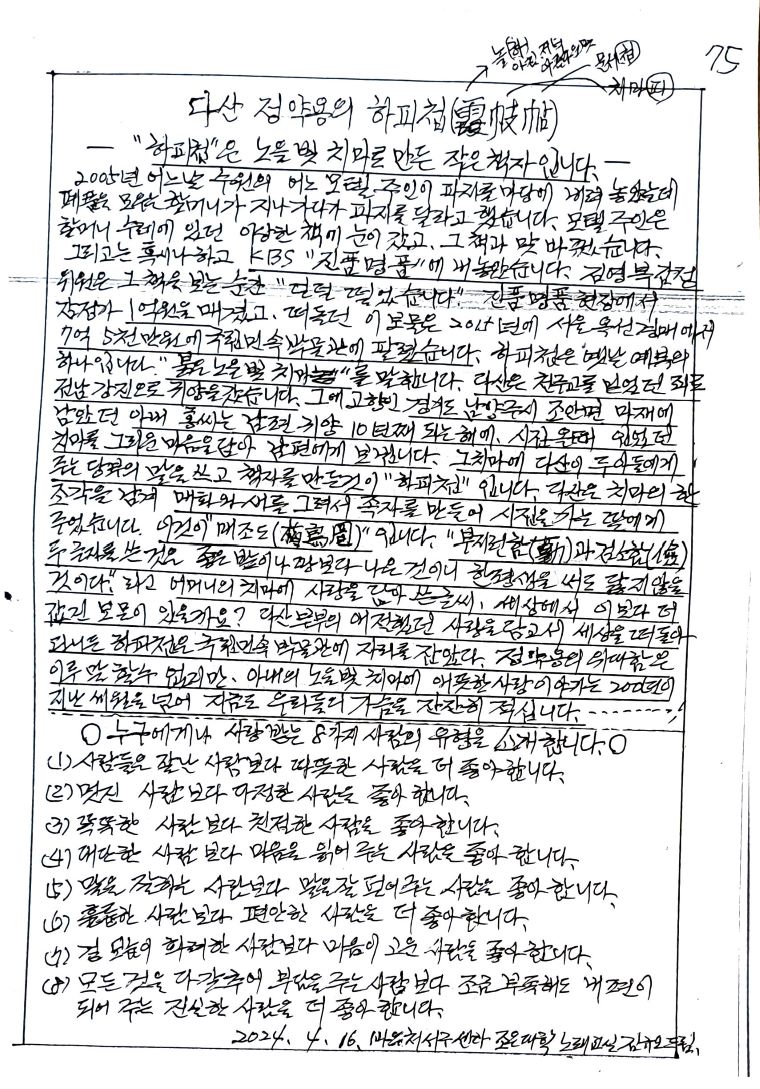 놀(하)
아침 저녁
문서(첩)
치마(피)
75
다산 정약용의 하피첩(霞帔帖)
— "하피첩"은 노을빛 치마로 만든 작은 책자입니다. —
2005년 어느날 수원의 어느 모텔 주인이 파지를 마당에 내려 놓았는데
폐품을 모으는 할머니가 지나가다가 파지를 달라고 했습니다. 모텔 주인은
할머니 수레에 있던 이상한 책에 눈이 갔고, 그 책과 맞바꿨습니다.
그리고는 혹시나 하고 KBS "진품명품"에 내놓았습니다. 김영복감정
위원은 그 책을 보는 순간 "덜덜 떨었습니다." 진품명품 현장에서
감정가 1억원을 매겼고, 떠돌던 이 보물은 2015년에 서울 옥션 경매에서
7억 5천만원에 국립민속박물관에 팔렸습니다. 하피첩은 옛날 예복의
하나입니다. "붉은 노을빛 치마"를 말합니다. 다산은 천주교를 믿었던 죄로
전남 강진으로 귀양을 갔습니다. 그에 고향인 경기도 남양주시 조안면 마재에
남았던 아내 홍씨는 남편 귀양 10년째 되는 해에, 시집올때 입었던
치마를 그리운 마음을 담아 남편에게 보냅니다. 그치마에 다산이 두아들에게
주는 당부의 말을 쓰고 책자를 만든것이 "하피첩"입니다. 다산은 치마의 한
조각을 남겨 매화와 새를 그려서 족자를 만들어 시집을 가는 딸에게
주었습니다. 이것이 "매조도(梅鳥圖)"입니다. "부지런함(勤)과 검소함(儉)
두 글자를 쓴 것은 좋은 밭이나 땅보다 나은 것이니 한평생을 써도 닳지 않을
것이다." 라고 어머니의 치마에 사랑을 담아 쓴글씨, 세상에서 이보다 더
값진 보물이 있을까요? 다산부부의 애절했던 사랑을 담고서 세상을 떠돌아
다니든 하피첩은 국립민속 박물관에 자리를 잡았다. 정약용의 위대함은
이루 말 할수 없지만, 아내의 노을빛 치마에 애뜻한사랑이야기는 200년의
지난 세월을 넘어 지금도 우리들의 가슴을 잔잔히 적십니다.
○ 누구에게나 사랑 받는 8가지 사람의 유형을 소개합니다. ○
(1) 사람들은 잘난 사람보다 따뜻한 사람을 더 좋아합니다.
(2) 멋진 사람보다 다정한 사람을 좋아 합니다.
(3) 똑똑한 사람보다 친절한 사람을 좋아합니다.
(4) 대단한 사람보다 마음을 읽어 주는 사람을 좋아 합니다.
(5) 말을 잘하는 사람보다 말을잘 들어주는 사람을 좋아 합니다.
(6) 훌륭한 사람보다 편안한 사람을 더 좋아합니다.
(7) 겉 모습이 화려한 사람보다 마음이 고운 사람을 좋아합니다.
(8) 모든 것을 다갖추어 부담을 주는 사람보다 조금 부족해도 내편이
되어 주는 진실한 사람을 더 좋아 합니다.
2024. 4. 16. 노래교실 드림.